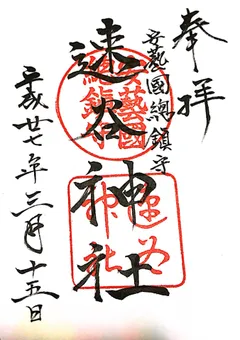 奉拝
安藝國總鎮守
速谷神社
安藝國
總鎮守
速谷
神社
平成廿七年三月十五日